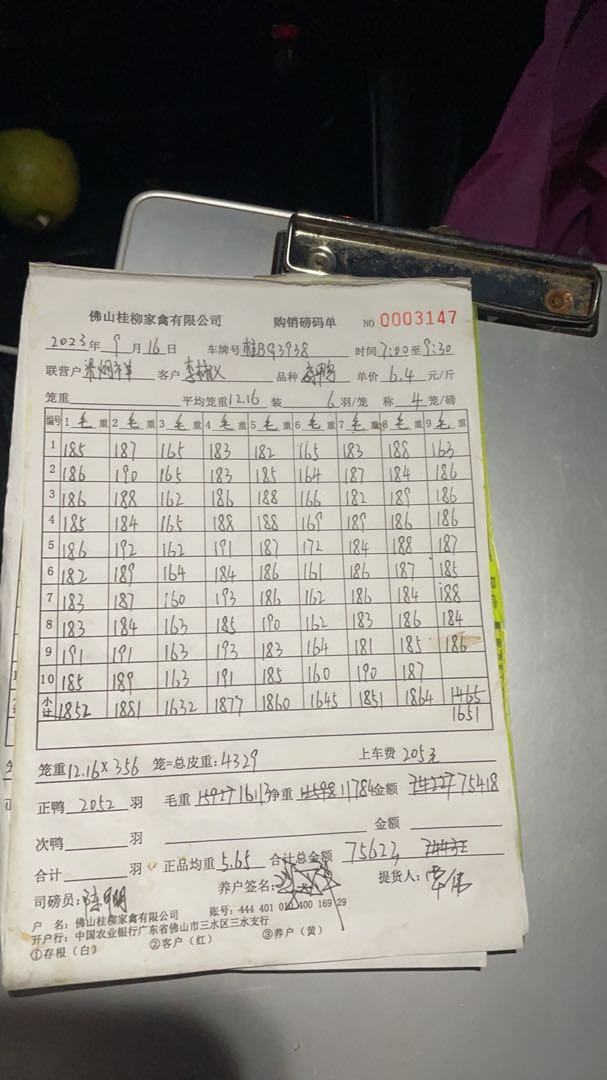 佛山桂柳家禽有限公司 购销磅码单 NO 0003147
2023年 9月16日 车牌号 桂BG3938 时间 7:00至9:30
联营户 客户 李 品种 鸭 单价 6.4 元/斤
笼重 平均笼重12.16 装 6羽/笼 称 4笼/磅
编号 1毛重 2毛重 3毛重 4毛重 5毛重 6毛重 7毛重 8毛重 9毛重
1 185 187 165 183 182 165 183 188 163
2 186 190 165 183 185 164 187 184 186
3 186 188 162 186 188 166 182 189 186
4 185 184 165 188 188 169 189 186 186
5 186 192 162 191 187 172 184 188 187
6 182 189 164 184 186 161 186 187 185
7 183 187 160 193 186 162 186 184 188
8 183 184 163 185 190 162 183 186 184
9 191 191 163 193 183 164 181 185 186
10 185 189 163 191 185 160 190 187
小计 1852 1881 1632 1877 1860 1645 1851 1864 1465
1651
笼重12.16×356 笼=总皮重:4329 上车费 205元
正鸭 2052 羽 毛重 15927 16113 净重 11598 11784 金额 74227 75418
次鸭 羽 金额
合计 羽 正品均重 5.65 合计总金额 75623
司磅员: 养户签名: 提货人: 伟
户 名:佛山桂柳家禽有限公司 账号:444 401 010 400 169 29
开户行:中国农业银行广东省佛山市三水区三水支行
①存根(白) ②客户(红) ③养户(黄)